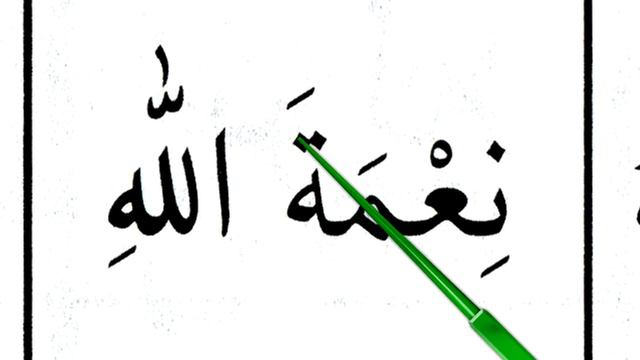 نِعْمَةَ اللّٰهِ